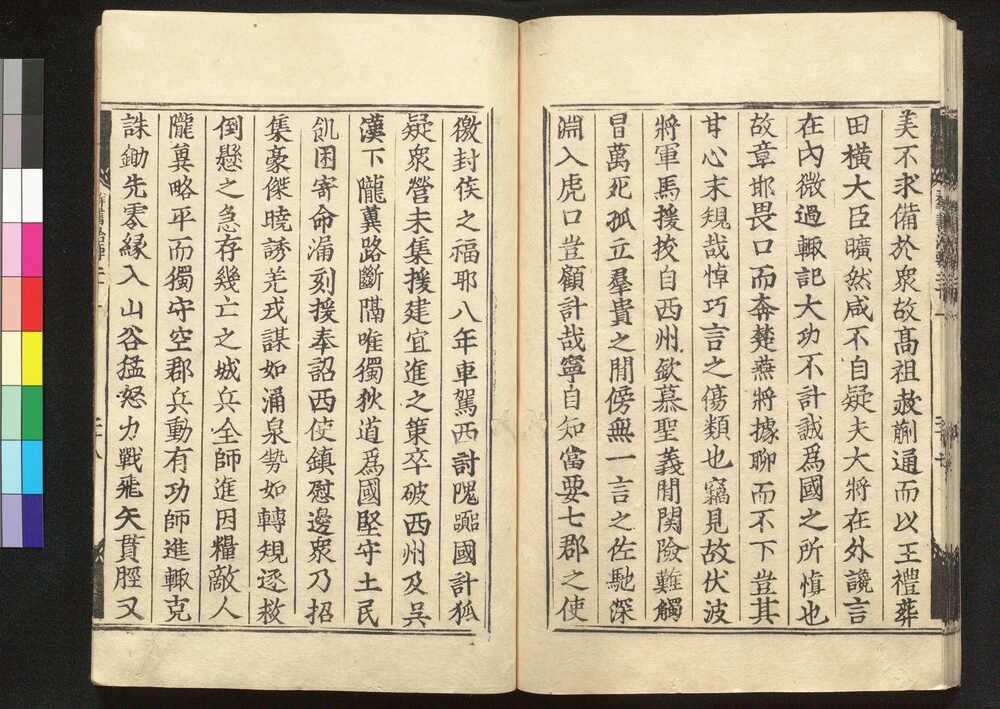 美不求備於衆故髙祖赦蒯通而以王禮葬
田横大臣曠然咸不自疑夫大將在外讒言
在內微過輒記大功不計誠爲國之所慎也
故章邯畏口而奔楚燕將據聊而不下豈其
甘心末規哉悼巧言之傷類也竊見故伏波
將軍馬援拔自西州欽慕聖義閒関險難觸
冒萬死孤立羣貴之閒傍無一言之佐馳深
淵入虎口豈顧計哉寧自知當要七郡之使
徼封侯之福耶八年車駕西討隗囂國計狐
疑衆營未集援建宜進之策卒破西州及吴
漢下隴冀路斷隔唯獨狄道爲國堅守士民
飢困寄命漏刻援奉詔西使鎮慰邊衆乃招
集豪傑曉誘羌戎謀如涌泉勢如轉規遂救
倒懸之急存幾亡之城兵全師進因糧敵人
隴冀略平而獨守空郡兵動有功師進輒克
誅鋤先零縁入山谷猛怒力戰飛矢貫脛又